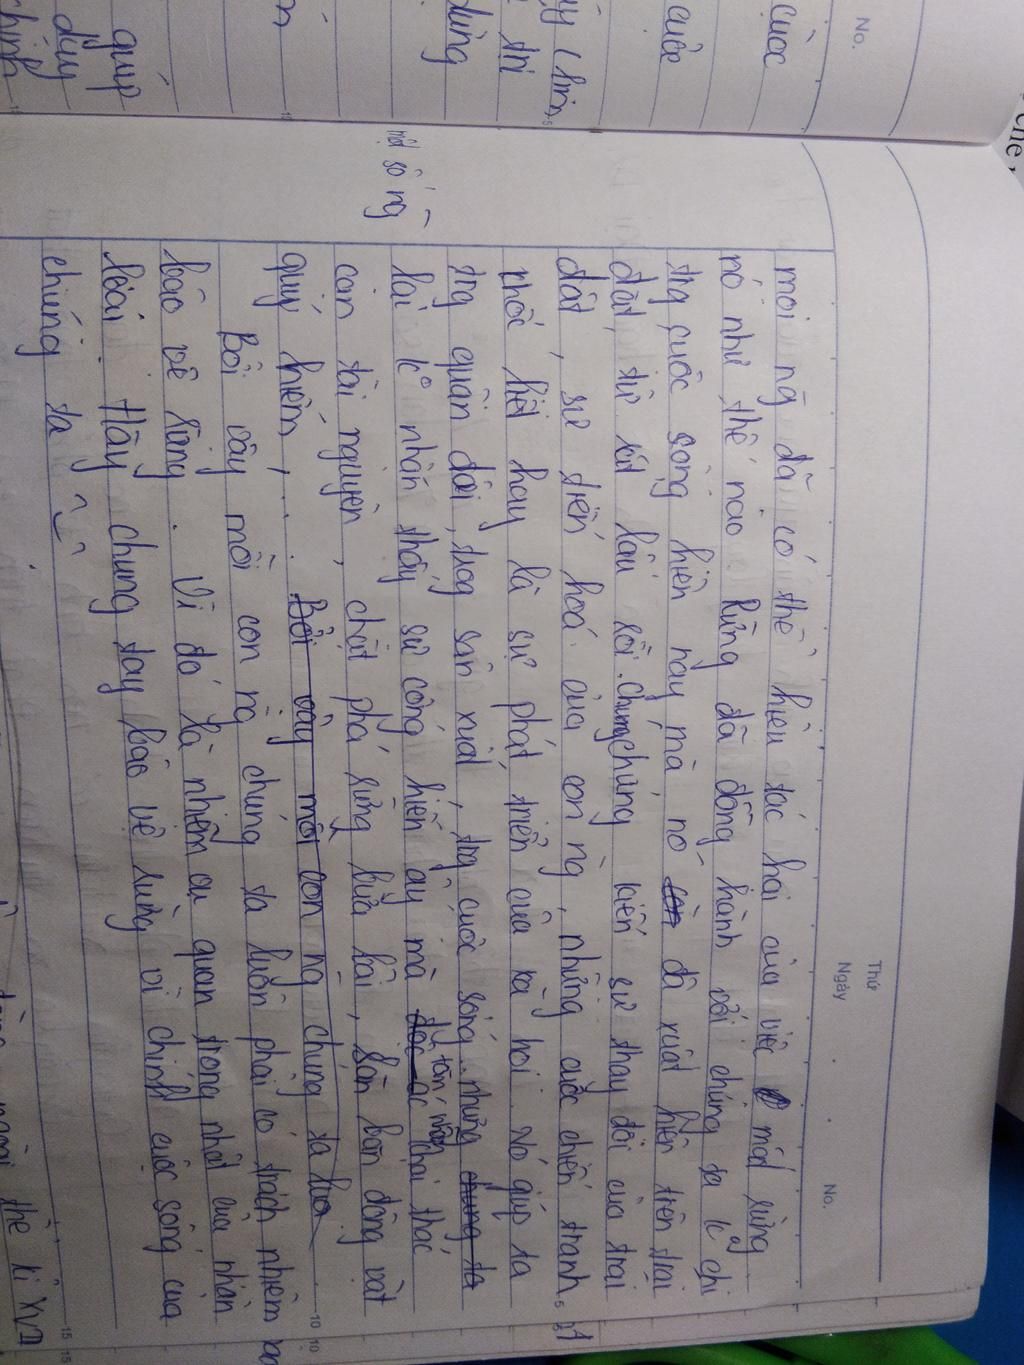 No.
cuộc
cuộc
dùng
giúp
Thứ
Ngày
No.
mọi ng đã có thể hiểu tác hại của việc mất rừng
nó như thế nào. Rừng đã đồng hành với chúng ta k chỉ
trg cuộc sống hiện nay mà nó đã xuất hiện trên trái
đất từ rất lâu rồi. Chúng chứng kiến sự thay đổi của trái
đất, sự tiến hoá của con ng, những cuộc chiến tranh
khốc liệt hay là sự phát triển của xã hội. Nó giúp ta
trg quân đội, trog sản xuất, trg cuộc sống.. nhưng chúng ta
một số ng
lại k nhận thấy sự cống hiến ấy mà độc ác khai thác
nhẫn tâm
cạn tài nguyên, chặt phá rừng bừa bãi, săn bắn động vật
quý hiếm,... Bởi vậy mỗi con ng chúng ta luô
Bởi vậy mỗi con ng chúng ta luôn phải có trách nhiệm
bảo vệ rừng. Vì đó là nhiệm vụ quan trọng nhất của nhân
loại. Hãy chung tay bảo vệ rừng vì chính cuộc sống của
chúng ta
thế kỉ XVI